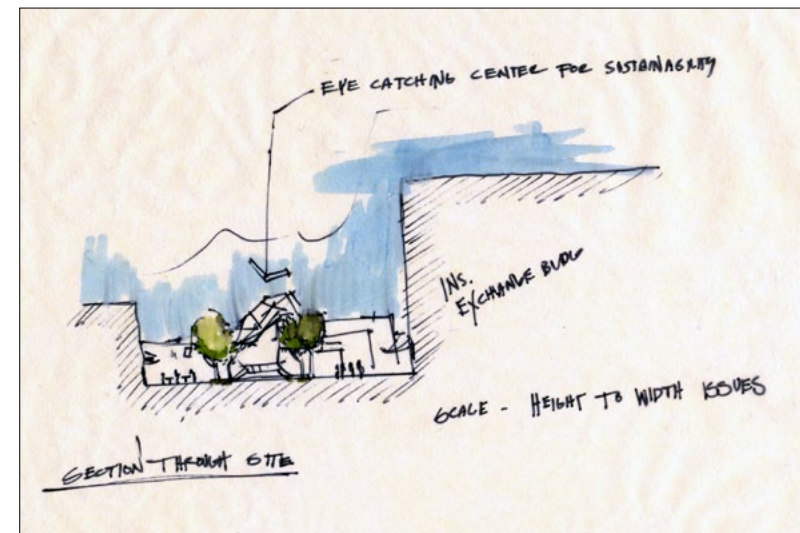 EYE CATCHING CENTER FOR SUSTAINABILITY
INS.
EXCHANGE BLDG
SCALE - HEIGHT TO WIDTH ISSUES
SECTION THROUGH SITE